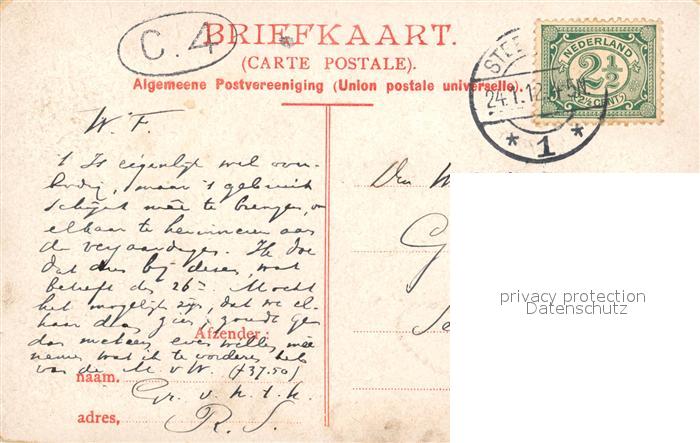 C.4
BRIEFKAART.
(CARTE POSTALE).
Algemeene Postvereeniging (Union postale universelle).
STEE
24.1.12.4-5N
* 1 *
NEDERLAND
2½
(2½ CENT)
W. F.
't Is eigenlijk wel over-
bodig, maar 't gebruik
schijnt mêe te brengen, om
elkaar te herinneren aan
de verjaardagen. Ik doe
dat dus bij deze, wat
betreft de 26e. Mocht
het mogelijk zijn, dat we el-
kaar dan zien, zoudt ge
dan meteen even willen mêe
nemen wat ik te vorderen heb
van de M. v. W. (f 37.50)
Gr. v. h. t. h.
R. S.
Afzender:
naam.
adres,
Den
G
privacy protection
Datenschutz